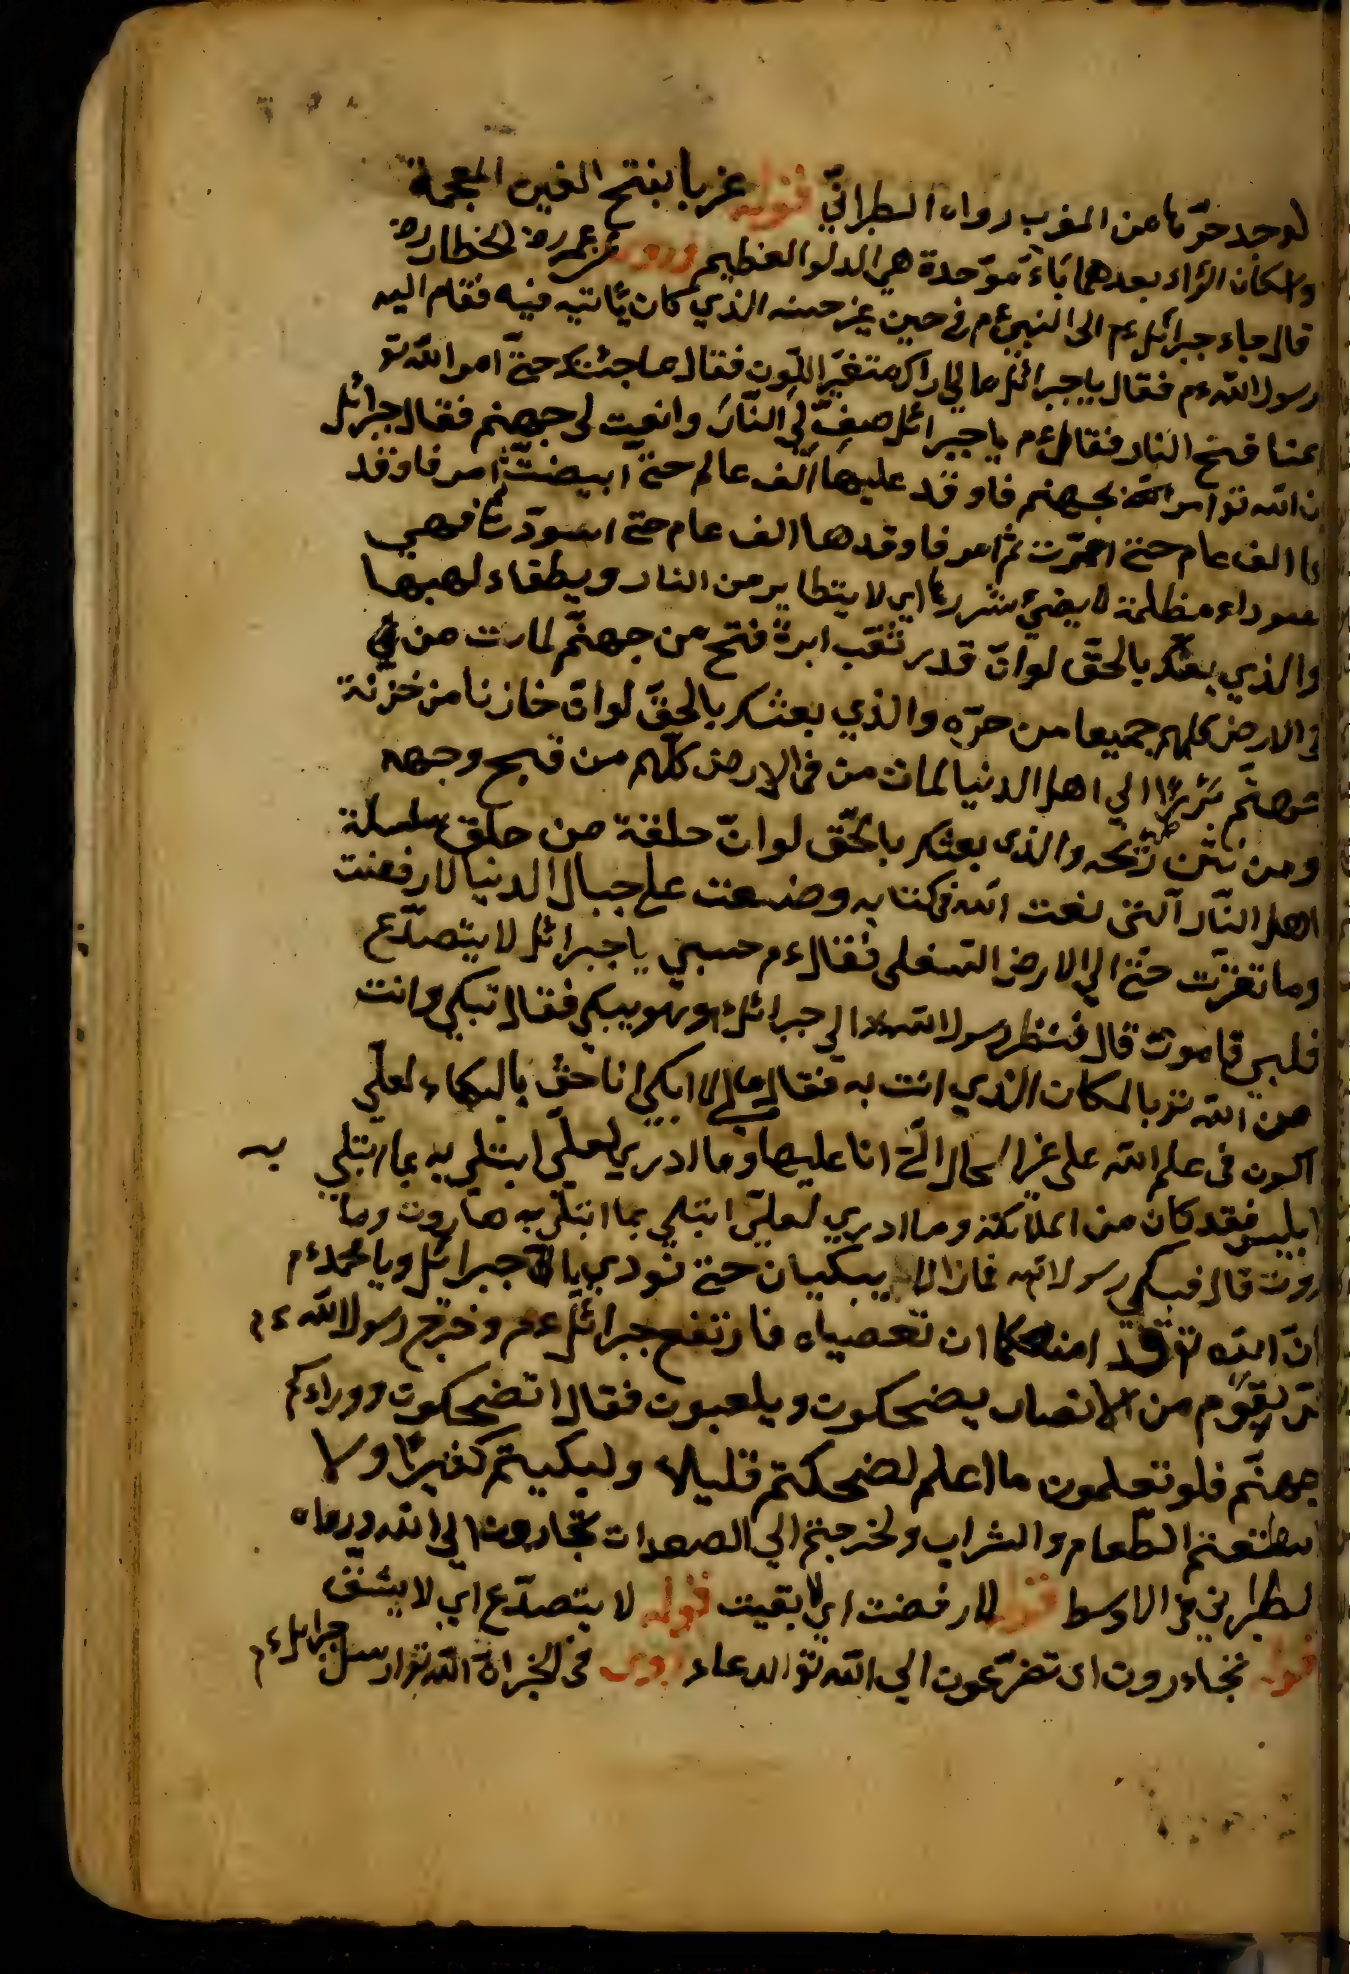 لوجد حرّها من المغرب رواه الطبرانيّ قوله غربا بفتح الغين المعجمة
واسكان الراء بعدهما باء موّحدة هي الدلو العظيم وروى عن عمر رض الخطاب رض
قال جاء جبرائل ءم الى النبي ءم في حين غير حينه الذي كان يأتيه فيه فقام اليه
رسول الله ءم فقال يا جبرائل ما لي اراك متغيّر اللون فقال ما جئتك حتّى امر الله تع
بمنافخ النار فقال ءم يا جبرائل صف لي النّار وانعت لي جهنم فقال جبرائل
ان الله تع امر بجهنم فاوقد عليها الف عام حتى ابيضّت ثم امر فاوقد
ها الف عام حتى احمرّت ثم امر فاوقدها الف عام حتى اسودّت فهي
سوداء مظلمة لا يضيئ شررها اي لا يتطاير من النار ويطفاء لهبها
والذي بعثك بالحقّ لو انّ قدر ثقب ابرة فتح من جهنّم لمات من في
في الارض كلهم جميعا من حرّه والذي بعثك بالحقّ لو انّ خازنا من خزنة
جهنّم برز الي اهل الدنيا لمات من في الارض كلّهم من قبح وجهه
ومن نتن ريحه والذي بعثك بالحّق لو انّ حلقة من حلق سلسلة
اهل النّار آلتى نعت الله في كتابه وضعت على جبال الدنيا لارفضت
وما تقرّت حتّى الي الارض السفلى فقال ءم حسبي يا جبرائل لا يتصدّع
قلبي فاموت قال فنظر رسول الله الي جبرائل وهو يبكي فقال تبكي وانت
من الله تع بالمكان الذي انت به فقال ما لي لا ابكي انا حقّ بالبكاء لعلّي
اكون في علم الله على غير الحال الّتى انا عليها وما ادري لعلّي ابتلى به بما ابتلي به
ابليس فقد كان من الملائكة وما ادري لعليّ ابتلي بما ابتلي به هاروت وما
روت قال فبكى رسول الله فما زالا يبكيان حتى نودي يا جبرائل ويا محمد ءم
انّ الله تع قد امنكما ان تعصياه فارتفع جبرائل ءم وخرج رسول الله ءم
مرّ بقوم من الانصار يضحكون ويلعبون فقال اتضحكون ووراءكم
جهنّم فلو تعلمون ما اعلم لضحكتم قليلا ولبكيتم كثيرًا ولا
اسطعتم الطّعام والشراب ولخرجتم الي الصعدات تجارون الي الله ورواه
الطبراني في الاوسط قوله لارفضت اي لا بقيت قوله لا يتصدّع اي لا يشقّ
قوله تجاءرون اى تضرّعون الي الله تع الدعاء وروى في الخبر انّ الله تع ارسل جبرائل ءم